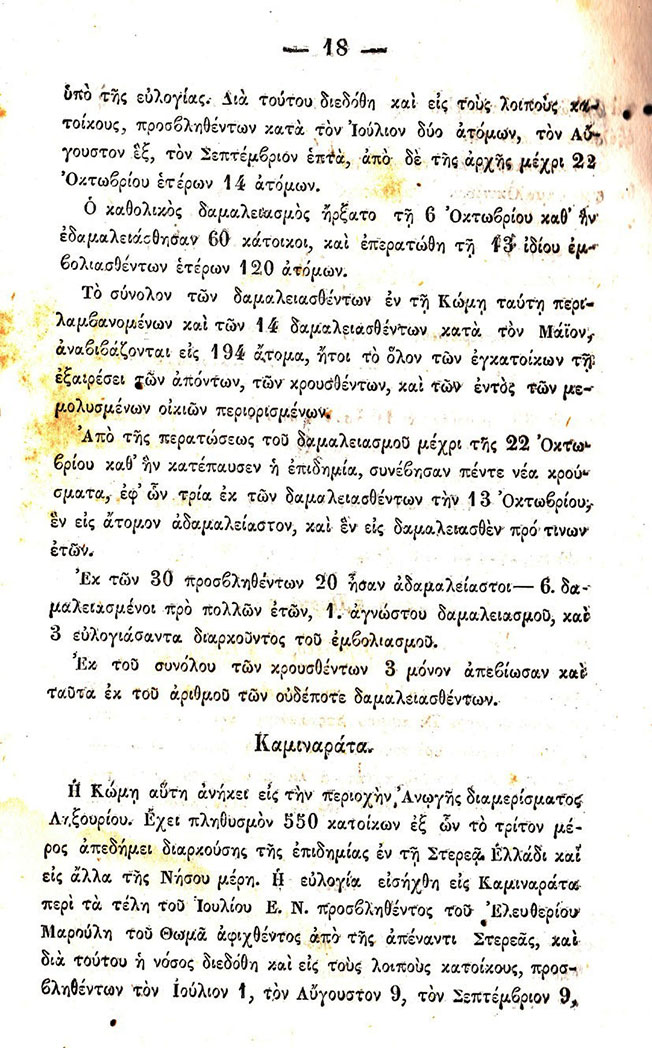 — 18 —
ὑπὸ τῆς εὐλογίας. Διὰ τούτου διεδόθη καὶ εἰς τοὺς λοιποὺς κα-
τοίκους, προσβληθέντων κατὰ τὸν Ἰούλιον δύο ἀτόμων, τὸν Αὔ-
γουστον ἓξ, τὸν Σεπτέμβριον ἑπτὰ, ἀπὸ δὲ τῆς ἀρχῆς μέχρι 22
Ὀκτωβρίου ἑτέρων 14 ἀτόμων.
Ὁ καθολικὸς δαμαλειασμὸς ἤρξατο τῇ 6 Ὀκτωβρίου καθ' ἣν
ἐδαμαλειάσθησαν 60 κάτοικοι, καὶ ἐπερατώθη τῇ 13 ἰδίου ἐμ-
βολιασθέντων ἑτέρων 120 ἀτόμων.
Τὸ σύνολον τῶν δαμαλειασθέντων ἐν τῇ Κώμῃ ταύτῃ περι-
λαμβανομένων καὶ τῶν 14 δαμαλειασθέντων κατὰ τὸν Μάϊον,
ἀναβιβάζονται εἰς 194 ἄτομα, ἤτοι τὸ ὅλον τῶν ἐγκατοίκων τῇ
ἐξαιρέσει τῶν ἀπόντων, τῶν κρουσθέντων, καὶ τῶν ἐντὸς τῶν με-
μολυσμένων οἰκιῶν περιορισμένων.
Ἀπὸ τῆς περατώσεως τοῦ δαμαλειασμοῦ μέχρι τῆς 22 Ὀκτω-
βρίου καθ' ἣν κατέπαυσεν ἡ ἐπιδημία, συνέβησαν πέντε νέα κρού-
σματα, ἐφ' ὧν τρία ἐκ τῶν δαμαλειασθέντων τὴν 13 Ὀκτωβρίου,
ἓν εἰς ἄτομον ἀδαμαλείαστον, καὶ ἓν εἰς δαμαλειασθὲν πρό τινων
ἐτῶν.
Ἐκ τῶν 30 προσβληθέντων 20 ἦσαν ἀδαμαλείαστοι— 6. δα-
μαλειασμένοι πρὸ πολλῶν ἐτῶν, 1. ἀγνώστου δαμαλειασμοῦ, καὶ
3 εὐλογιάσαντα διαρκοῦντος τοῦ ἐμβολιασμοῦ.
Ἐκ τοῦ συνόλου τῶν κρουσθέντων 3 μόνον ἀπεβίωσαν καὶ
ταῦτα ἐκ τοῦ ἀριθμοῦ τῶν οὐδέποτε δαμαλειασθέντων.
Καμιναράτα.
Ἡ Κώμη αὕτη ἀνήκει εἰς τὴν περιοχὴν Ἀνωγῆς διαμερίσματος
Ληξουρίου. Ἔχει πληθυσμὸν 550 κατοίκων ἐξ ὧν τὸ τρίτον μέ-
ρος ἀπεδήμει διαρκούσης τῆς ἐπιδημίας ἐν τῇ Στερεᾷ Ἑλλάδι καὶ
εἰς ἄλλα τῆς Νήσου μέρη. Ἡ εὐλογία εἰσήχθη εἰς Καμιναράτα
περὶ τὰ τέλη τοῦ Ἰουλίου Ε. Ν. προσβληθέντος τοῦ Ἐλευθερίου
Μαρούλη τοῦ Θωμᾶ ἀφιχθέντος ἀπὸ τῆς ἀπέναντι Στερεᾶς, καὶ
διὰ τούτου ἡ νόσος διεδόθη καὶ εἰς τοὺς λοιποὺς κατοίκους, προσ-
βληθέντων τὸν Ἰούλιον 1, τὸν Αὔγουστον 9, τὸν Σεπτέμβριον 9,